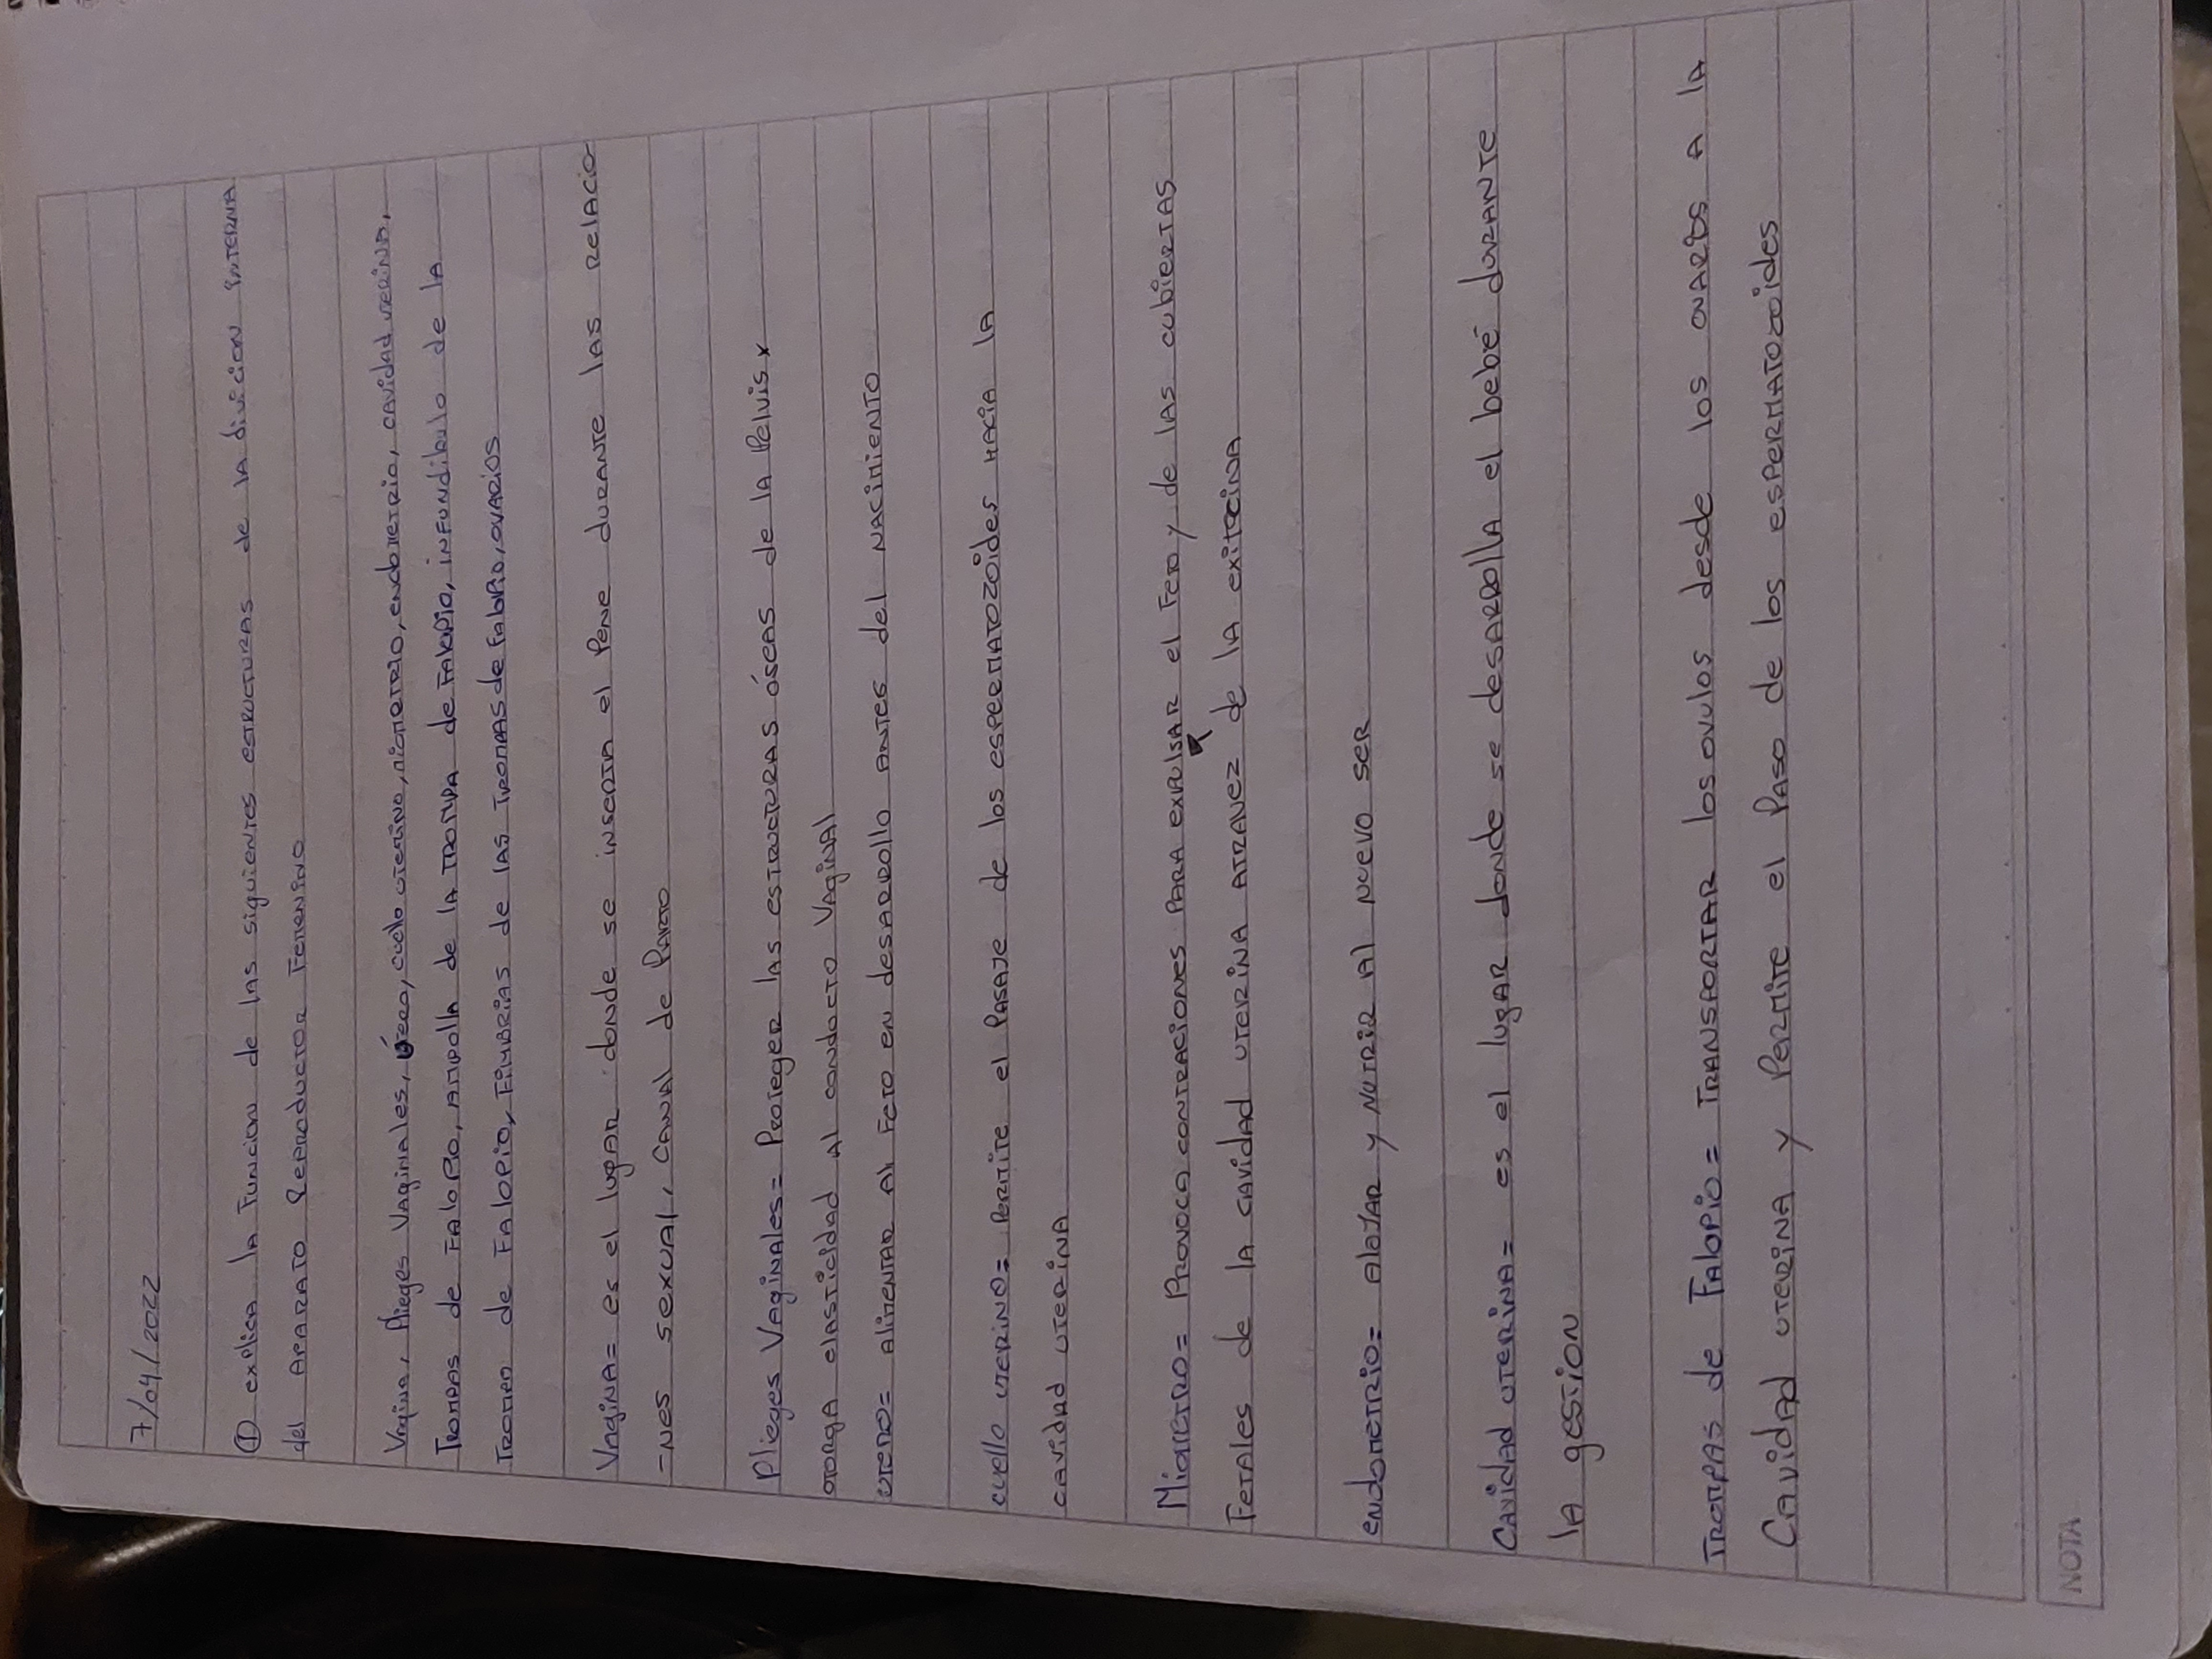 7/04/2022
① explica la Funcion de las siguientes estructuras de la divicion interna
del aparato Reproductor Femenino
Vagina, Plieges Vaginales, útero, cuello uterino, miometrio, endometrio, cavidad uterina,
Trompas de Falopio, ampolla de la trompa de Falopio, infundibulo de la
trompa de Falopio, Fimbrias de las trompas de Falopio, ovarios
Vagina= es el lugar donde se inserta el Pene durante las relacio-
-nes sexual, canal de Parto
Plieges Vaginales= Proteger las estructuras óseas de la Pelvis x
otorga elasticidad al conducto Vaginal
utero= alimentar al Feto en desarrollo antes del nacimiento
cuello uterino= Permite el Pasaje de los espermatozoides hacia la
cavidad uterina
Miometro= Provoca contraciones para expulsar el Feto y de las cubiertas
Fetales de la cavidad uterina atravez de la exitocina
endometrio= alojar y nutrir al nuevo ser
Cavidad uterina= es el lugar donde se desarrolla el bebé durante
la gestion
Trompas de Falopio= Transportar los ovulos desde los ovarios a la
Cavidad uterina y Permite el Paso de los espermatozoides
NOTA